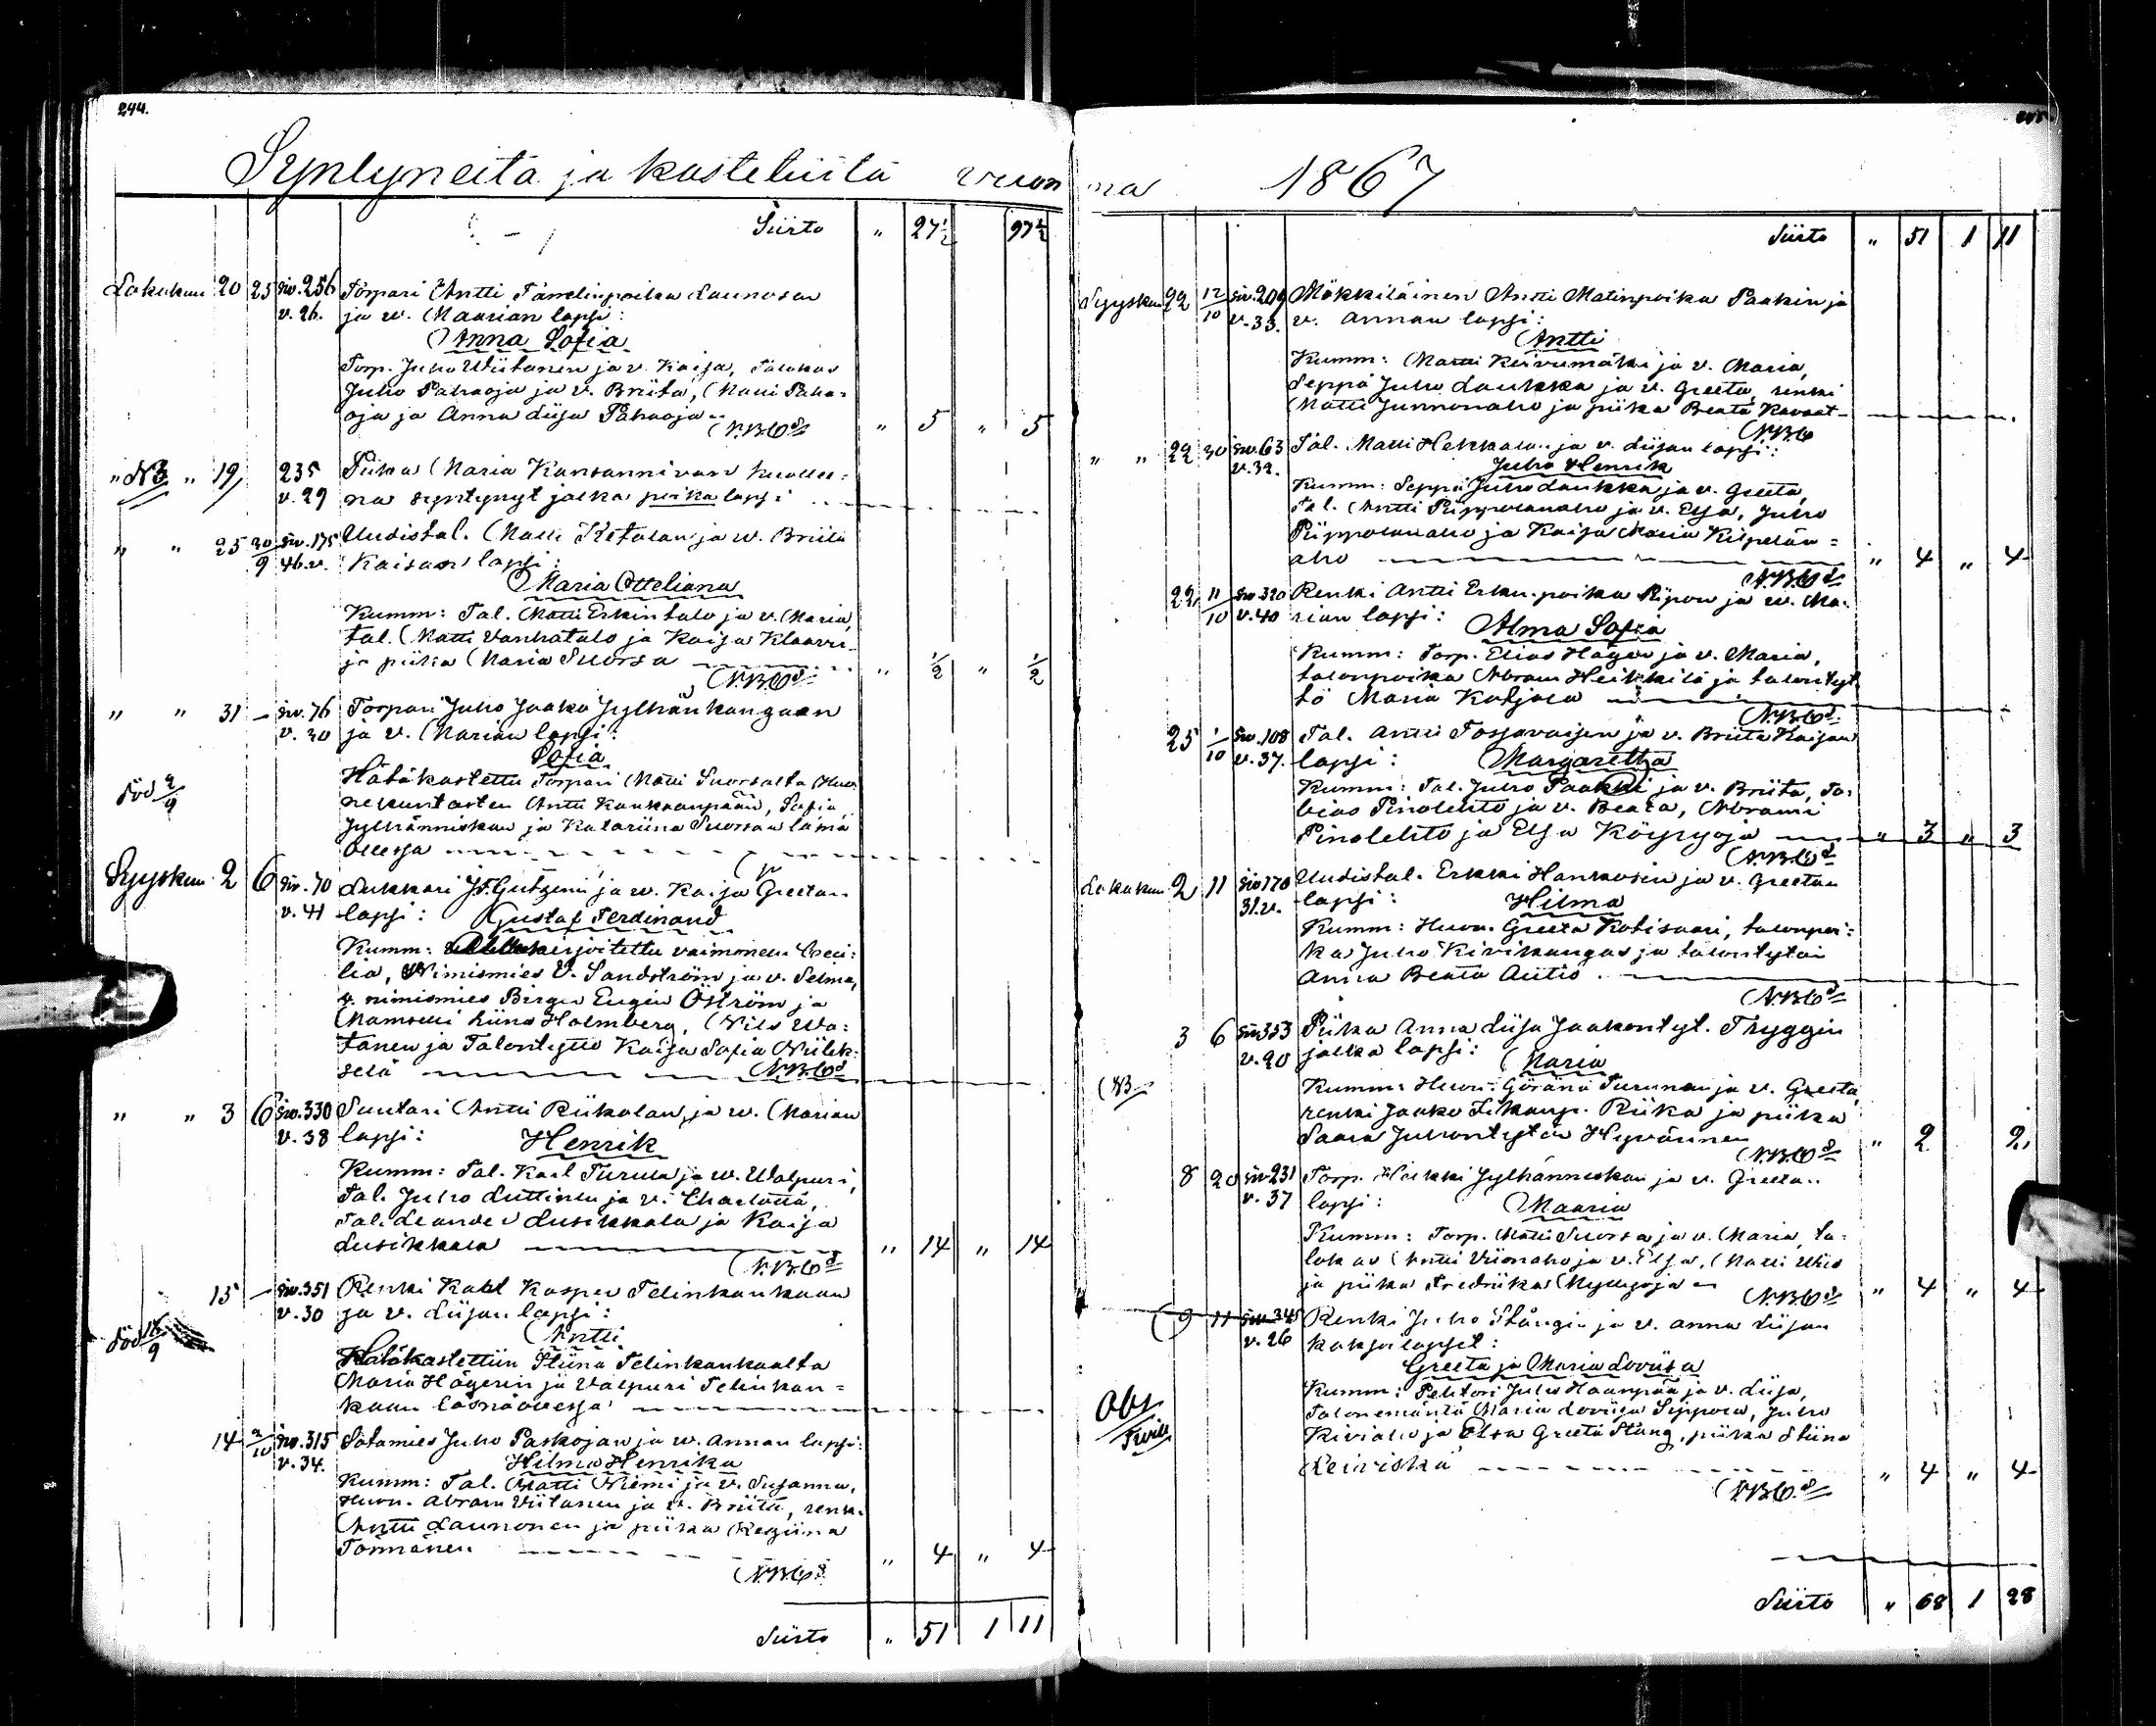 244.
Syntyneitä ja kastetuita vuon
Siirto " 27½ 97½
Lokakuu 20 25 siv. 256 Torpari Antti Taneliinpoika Launosen
v. 26. ja w. Maarian lapsi:
Anna Sofia
Torp. Juho Wiitanen ja v. Kaisa,
Juho Pahaoja ja v. Briita, Matti Paha-
oja ja Anna Liisa Pahaoja " 5 " 5
N.B.
" NB " 19 235 Piika Maria Kansannivan kuollee-
v. 29 na syntynyt jalka poika lapsi
" " 25 30/9 siv. 175 Uudistal. Matti Ketolan ja w. Briita
46.v. Kaisan lapsi:
Maria Otteliana
Kumm: Tal. Matti Erkintalo ja v. Maria,
tal. Matti Vanhatalo ja Kaisa
ja piika Maria Suorsa " ½ " ½
N.B.
" " 31 – siv. 76 Torpari Juho Jaako Jylhänkangaan
v. 30 ja v. Marian lapsi:
Sofia
Hätäkastettu Torpari Matti Suorsalta
född 2/9
Antti Kankaanpään, Sofia
Jylhänniskan ja Katariina Suorsan läsnä
ollessa
Syyskuu 2 6 siv. 70 Lukkari Js. Gutzenin ja w. Kaisa Greetan
v. 41 lapsi: Gustaf Ferdinand
Kumm: vaimoneen Ceci-
lia, Nimismies V. Sandström ja v. Selma,
v. nimismies Birger Eugen Öström ja
Mamselli Liina Holmberg, Nils Wa-
tanen ja Talontyttö Kaisa Sofia Niilek-
selä
N.B.
" " 3 6 siv. 330 Suutari Antti Riikolan ja w. Marian
v. 38 lapsi: Henrik
Kumm: Tal. Karl Turula ja w. Walpuri,
Tal. Juho Luttinen ja v. Charlotta,
Tal. Leander Lusikkala ja Kaisa
Lusikkala " 14 " 14
N.B.
15 – siv. 351 Renki Kaspar Telinkankaan
v. 30 ja v. Liisan lapsi:
Antti
född /9
Hätäkastettiin Stiina Telinkankaalta
Maria Hägerin ja Valpuri Telinkan-
kaan läsnäollessa
14 2/10 siv. 315 Sotamies Juho Paskojan ja w. Annan lapsi:
v. 34. Hilma Henrika
Kumm: Tal. Matti Niemi ja v. Susanna,
Huon. Abram Viitanen ja v. Briita, renki
Antti Launonen ja piika Regiina
Törmänen " 4 " 4
N.B.
Siirto " 51 1 11
na 1867
Siirto " 51 1 11
Syyskuu 22 12/10 siv. 209 Mökkiläinen Antti Matinpoika Paakin ja
v. 33. v. Annan lapsi:
Antti
Kumm: Martti Keivumäki ja v. Maria,
Seppä Juho Laukka ja v. Greeta, renki
Matti Junnonaho ja piika Beata
N.B.
" " 22 30 siv. 63 Tal. Matti Hekkalan ja v. Liisan lapsi:
v. 32. Juho Henrik
Kumm: Seppä Juho Laukka ja v. Greeta,
tal. Antti Piippolanaho ja v. Elsa, Juho
Piippolanaho ja Kaisa Maria Kilpelän-
aho " 4 " 4
N.B.
22 11/10 siv. 320 Renki Antti Erkin poika Ripon ja w. Ma-
v. 40 rian lapsi: Alma Sofia
Kumm: Torp. Elias Häger ja v. Maria,
talonpoika Abram Heikkilä ja talontyt-
tö Maria Katjala
N.B.
25 1/10 siv. 108 Tal. Antti Torsavaisen ja v. Briita Kaisan
v. 37. lapsi: Margaretha
Kumm: Tal. Juho Paakki ja v. Briita, To-
bias Pinolehto ja v. Beata, Abrami
Pinolehto ja Elsa Köypyoja " 3 " 3
N.B.
Lokakuu 2 11 siv 170 Uudistal. Erkki Hankosen ja v. Greetan
31.v. lapsi: Hilma
Kumm: Huon. Greeta Kotisaari, talonpoi-
ka Juho Kivikangas ja talontytär
Anna Beata Autio
N.B.
3 6 siv 353 Piika Anna Liisa Jaakontyt. Thyggin
v. 20 jalka lapsi: Maria
NB
Kumm: Huon. Görän Turunen ja v. Greeta,
renki Jaako Riika ja piika
Saara Juhontytär Hyvärinen " 2 2
N.B.
8 20 siv 231 Torp. Heikki Jylhänniskan ja v. Greetan
v. 37 lapsi: Maaria
Kumm: Torp. Matti Suorsa ja v. Maria, ta-
lokas Antti Viionaho ja v. Elsa, Matti
ja piika Fredrika Myllyoja " 4 " 4
N.B.
9 11 siv 345 Renki Juho Stångin ja v. Anna Liisan
v. 26 kaksoislapset:
Greeta ja Maria Loviisa
Obs
Kumm: Juho Haanpää ja v. Liisa,
Talonemäntä Maria Loviisa Seppola, Juho
Kiviaho ja Elsa Greeta Stång, piika Stiina
Leiviskä " 4 " 4
N.B.
Siirto " 68 1 28